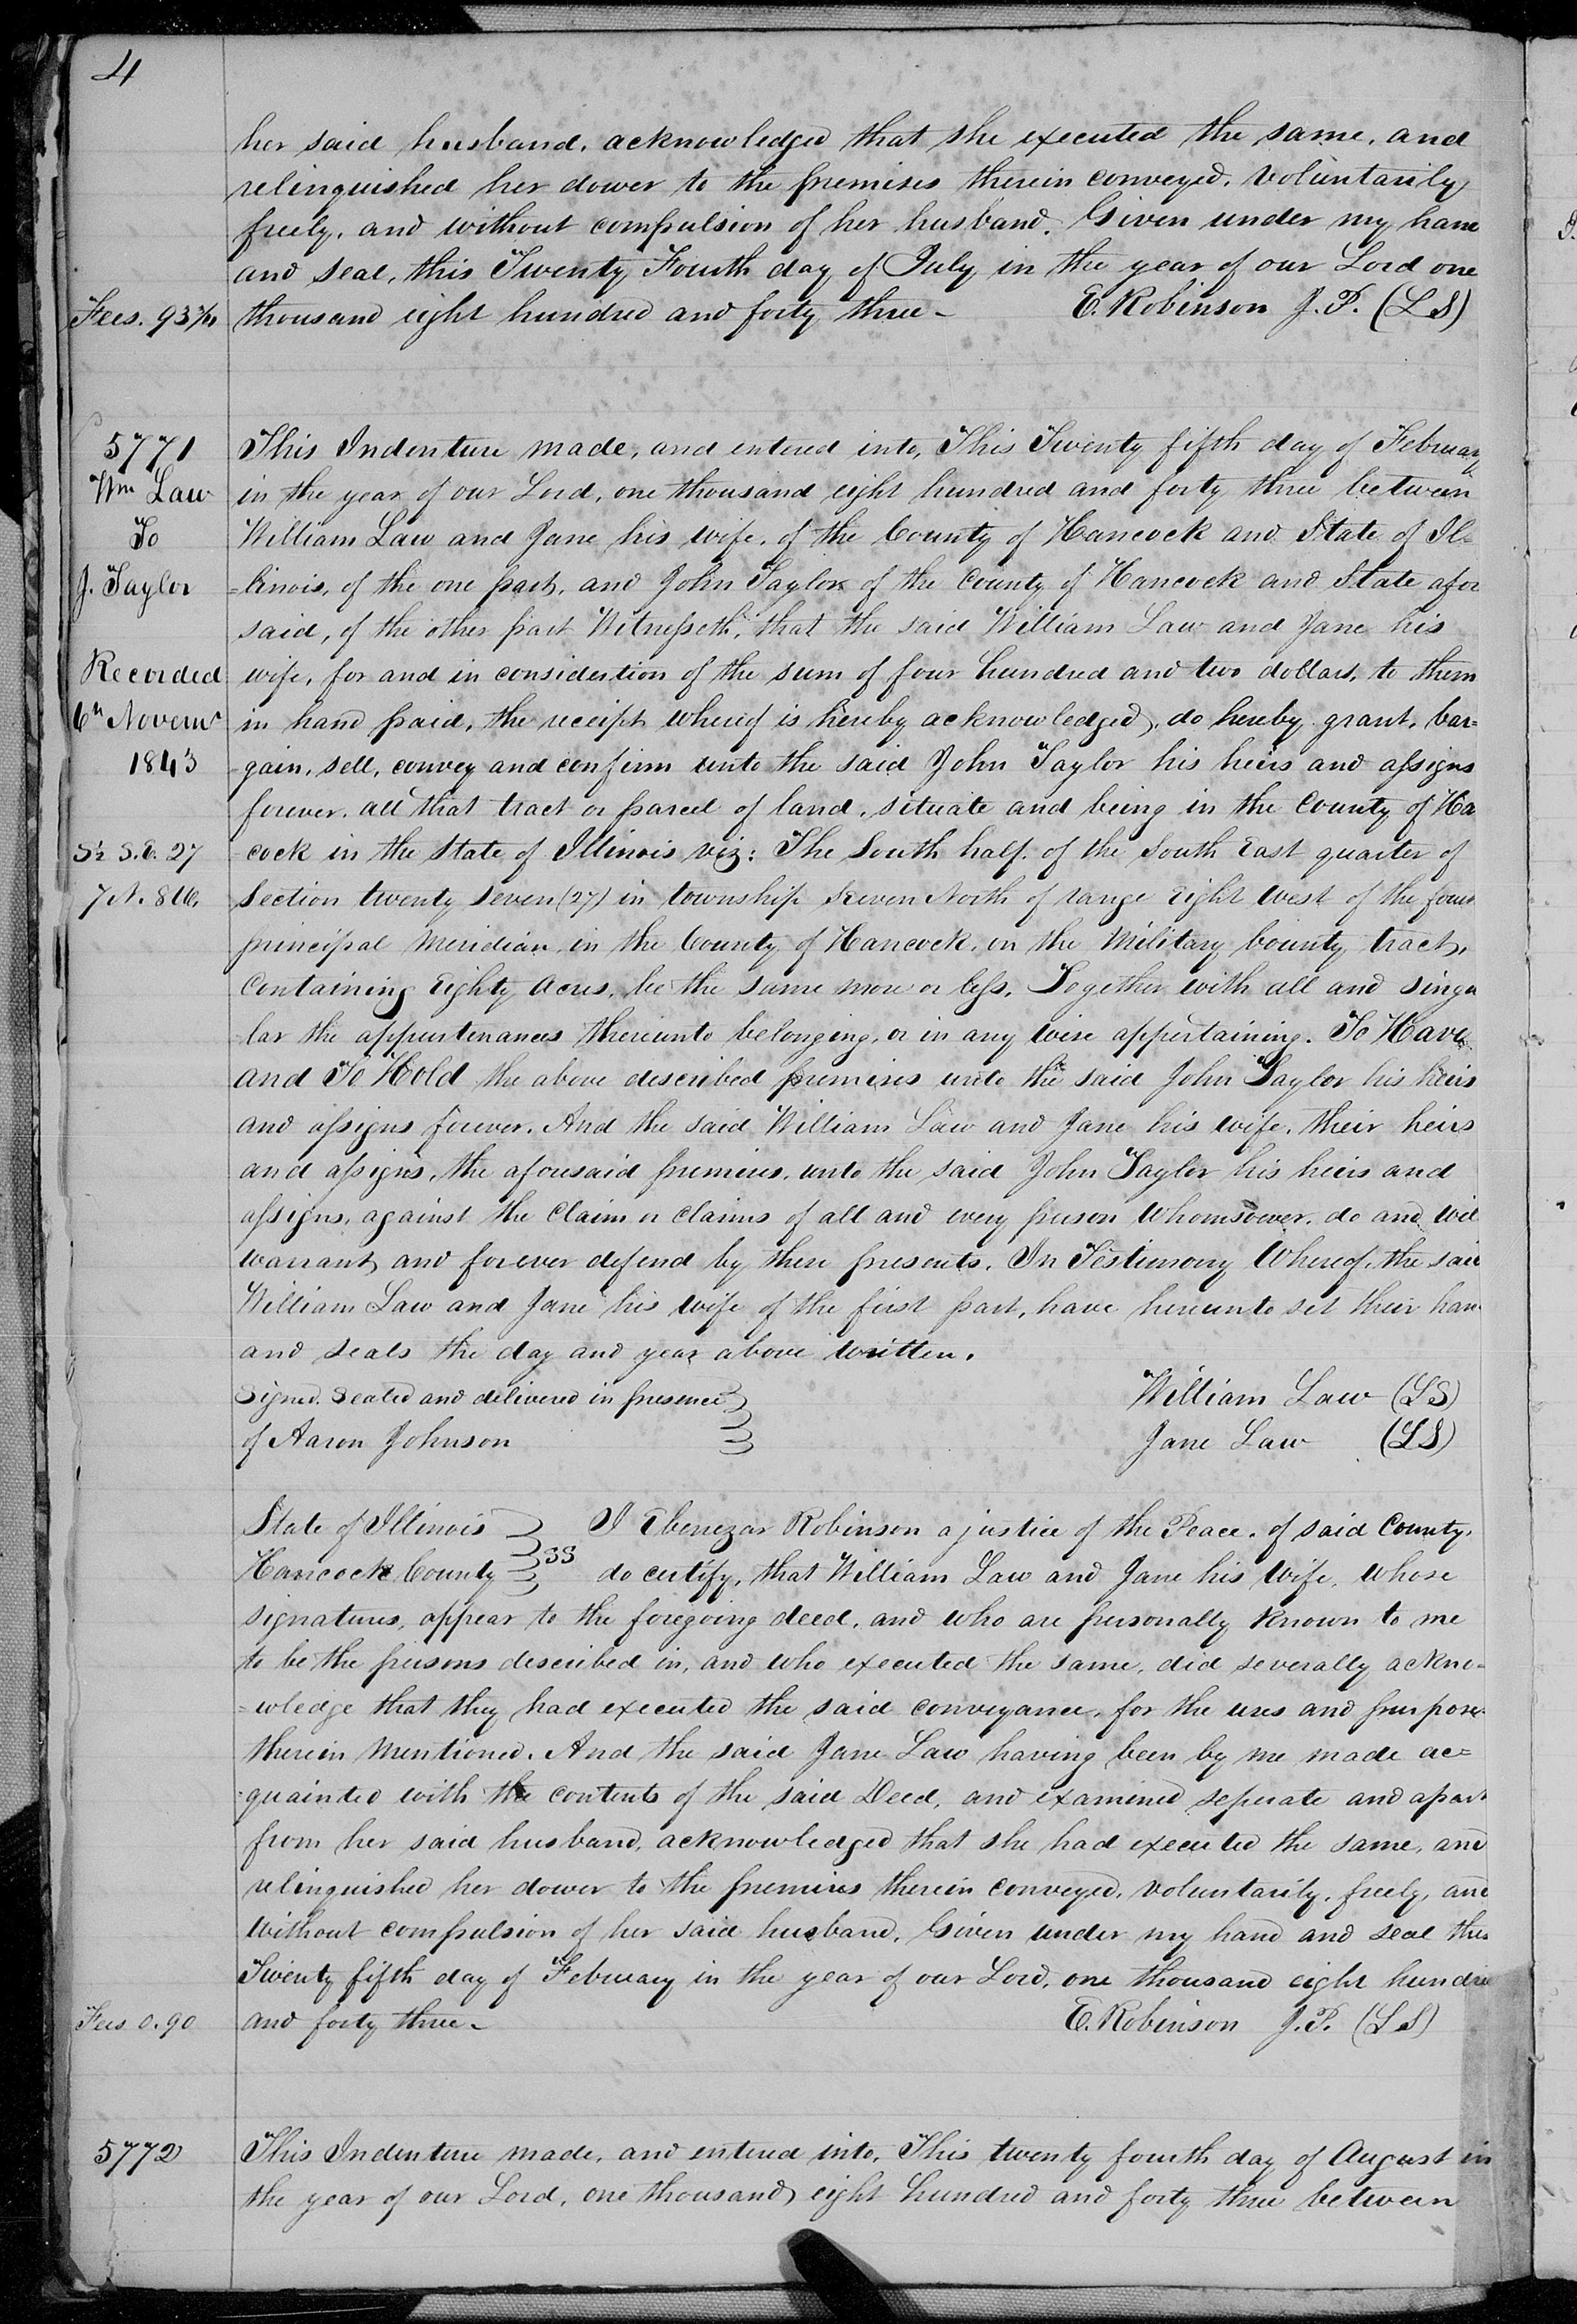 4
her said husband, acknowledged that she executed the same, and
relinquished her dower to the premises therein conveyed, voluntarily
freely, and without compulsion of her husband. Given under my han
and seal, this Twenty Fourth day of July in the year of our Lord one
Fees. 93
thousand eight hundred and forty three - E. Robinson J. P. (L S)
5771
Wm Law
To
J. Taylor
Recorded
6th Novemr
1843
S½ S.E. 27
7 N. 8 W.
This Indenture made, and entered into, This Twenty fifth day of February
in the year of our Lord, one thousand eight hundred and forty three between
William Law and Jane his wife, of the County of Hancock and State of Il-
-linois, of the one part, and John Taylor of the County of Hancock and State afor
said, of the other part Witnesseth, that the said William Law and Jane his
wife, for and in considertion of the sum of four hundred and two dollars, to them
in hand paid, the receipt whereof is hereby acknowledged, do hereby grant, bar=
-gain, sell, convey and confirm unto the said John Taylor his heirs and assigns
forever, all that tract or parcel of land, situate and being in the County of Ha
cock in the State of Illinois viz: The South half of the South East quarter of
Section twenty seven (27) in township Seven North of range Eight west of the four
principal Meridian, in the County of Hancock, in the Military bounty tract,
Containing Eighty Acres, be the same more or less, Together with all and singu
-lar the appurtenances thereunto belonging, or in any wise appertaining. To Have
and To Hold the above described premises unto the said John Taylor his heirs
and assigns forever. And the said William Law and Jane his wife, their heirs
and assigns, the aforesaid premises, unto the said John Taylor his heirs and
assigns, against the Claim or Claims of all and every person Whomsoever, do and wil
warrant and forever defend by these presents. In Testimony Whereof, the said
William Law and Jane his wife of the first part, have hereunto set their han
and seals the day and year above written.
Signed. Sealed and delivered in presence William Law (LS)
of Aaron Johnson Jane Law (LS)
State of Illinois I Ebenezar Robinson a justice of the Peace, of said County,
Hancock County SS do certify, that William Law and Jane his Wife, Whose
signatures, appear to the foregoing deed, and who are personally Known to me
to be the persons described in, and who executed the same, did severally ackno-
=wledge that they had executed the said conveyance, for the uses and purpose
therein Mentioned. And the said Jane Law having been by me made ac=
-quainted with the contents of the said Deed, and examined seperate and apart
from her said husband, acknowledged that she had executed the same, and
relinquished her dower to the premises therein conveyed, voluntarily, freely, and
without compulsion of her said husband, Given under my hand and seal this
Twenty fifth day of February in the year of our Lord, one thousand eight hundre
Fees 0.90
and forty three - E. Robinson J. P. (L S)
5772
This Indenture made, and entered into, This twenty fourth day of August in
the year of our Lord, one thousand eight hundred and forty three between